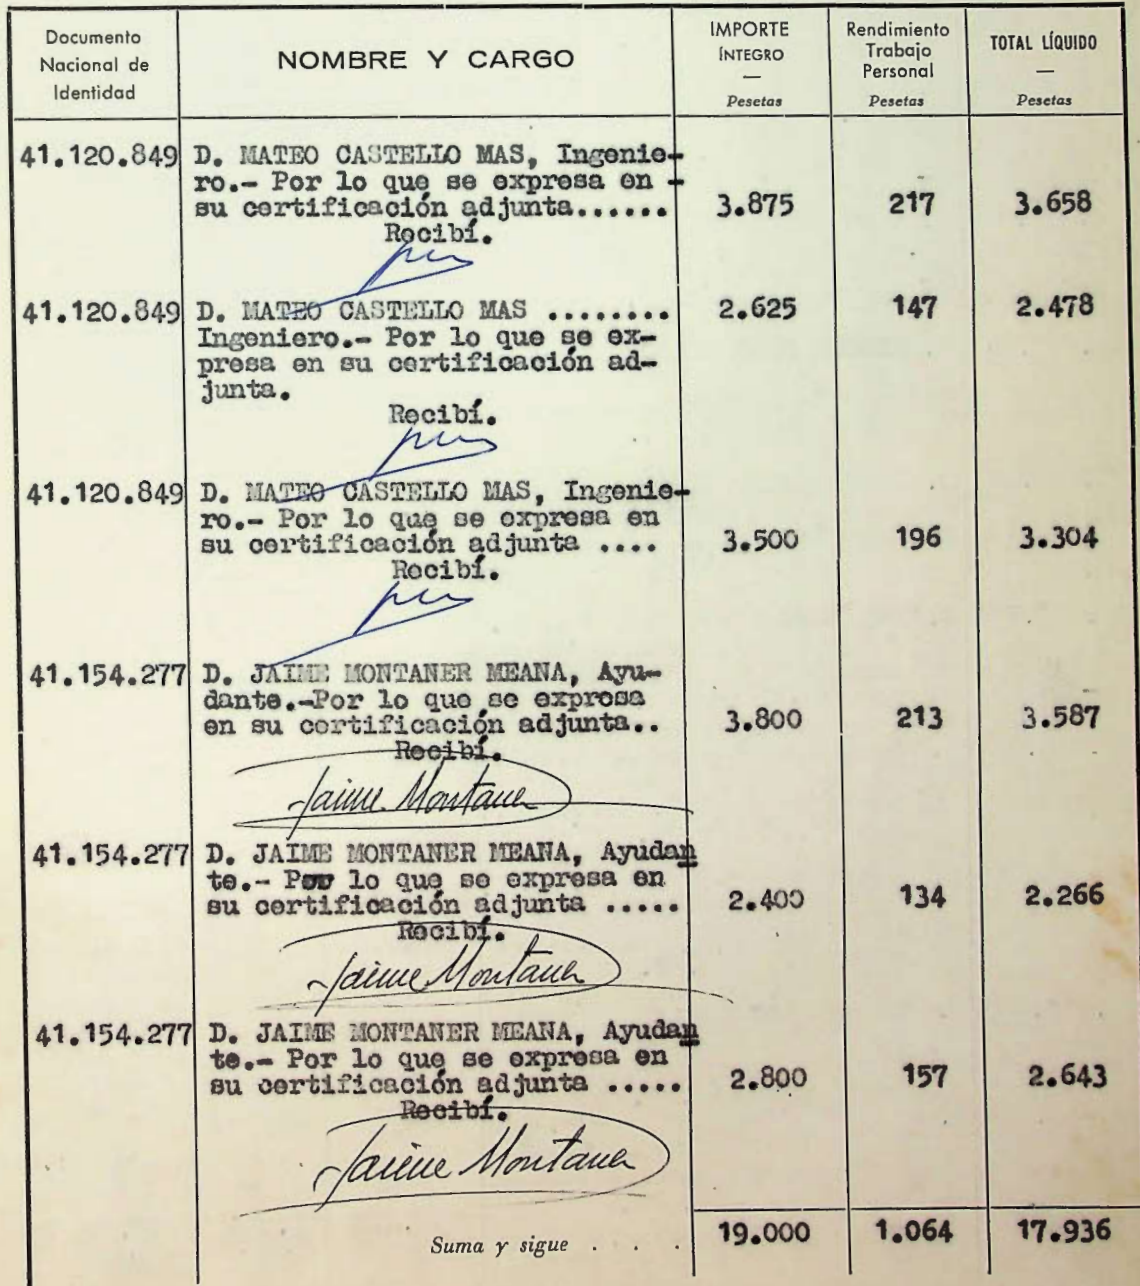 Documento
Nacional de
Identidad
NOMBRE Y CARGO
IMPORTE
ÍNTEGRO
—
Pesetas
Rendimiento
Trabajo
Personal
Pesetas
TOTAL LÍQUIDO
—
Pesetas
41.120.849 D. MATEO CASTELLO MAS, Ingenie-
ro.- Por lo que se expresa en -
su certificación adjunta...... 3.875 217 3.658
Recibí.
41.120.849 D. MATEO CASTELLO MAS ........ 2.625 147 2.478
Ingeniero.- Por lo que se ex-
presa en su certificación ad-
junta.
Recibí.
41.120.849 D. MATEO CASTELLO MAS, Ingenie-
ro.- Por lo que se expresa en
su certificación adjunta .... 3.500 196 3.304
Recibí.
41.154.277 D. JAIME MONTANER MEANA, Ayu-
dante.-Por lo que se expresa
en su certificación adjunta.. 3.800 213 3.587
Recibí.
Jaime Montaner
41.154.277 D. JAIME MONTANER MEANA, Ayudan
te.- Por lo que se expresa en
su certificación adjunta ..... 2.400 134 2.266
Recibí.
Jaime Montaner
41.154.277 D. JAIME MONTANER MEANA, Ayudan
te.- Por lo que se expresa en
su certificación adjunta ..... 2.800 157 2.643
Recibí.
Jaime Montaner
Suma y sigue . . . 19.000 1.064 17.936